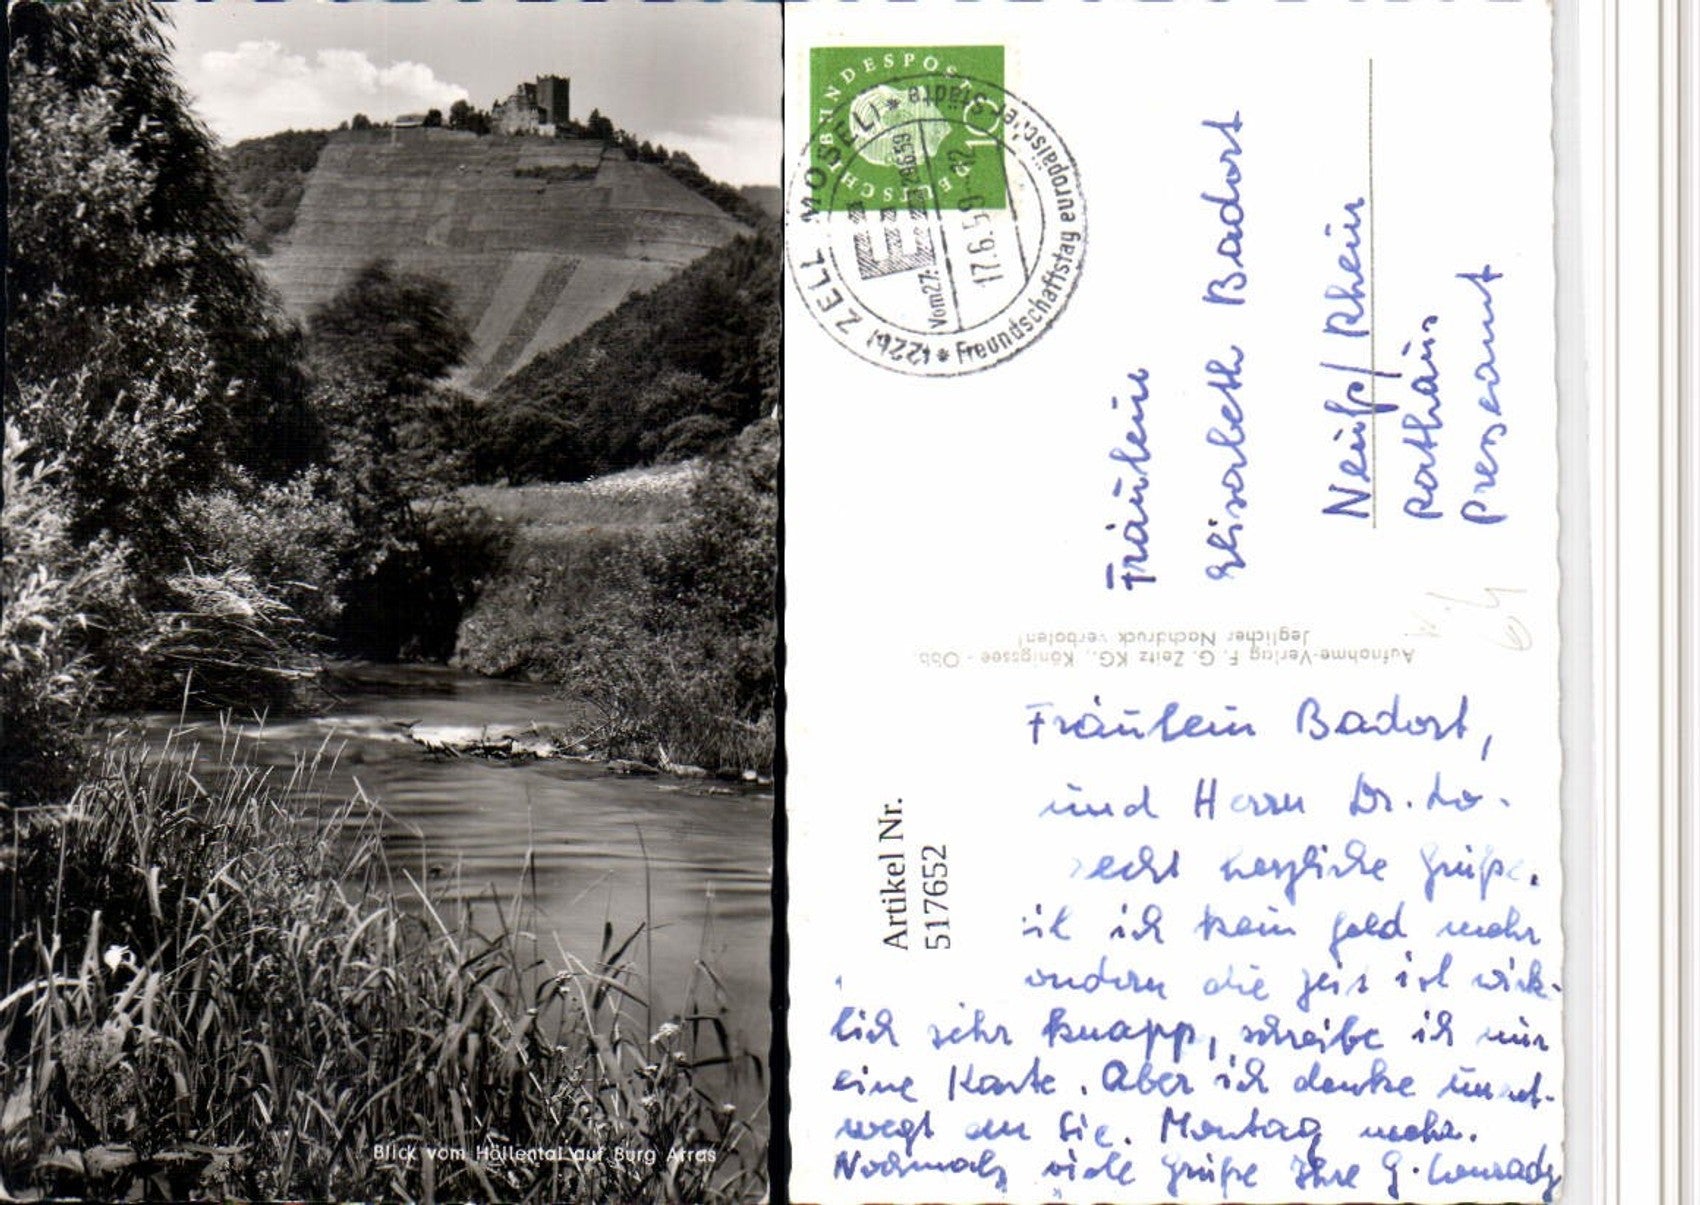 Blick vom Höllental auf Burg Arras
DEUTSCHE BUNDESPOST
10
(22b) ZELL MOSEL
* Freundschaftstag europäischer Städte *
17.6.59-12
Fräulein
Elisabeth Badort
Neuß/Rhein
Rathaus
Presseamt
Aufnahme-Verlag F. G. Zeitz KG., Königssee - Obb.
Jeglicher Nachdruck verboten!
Artikel Nr.
517652
Fräulein Badort,
und Herrn Dr. Lo-
recht herzliche Grüße.
il ich kein Geld mehr
ondern die Zeit ist wirk-
lich sehr knapp, schreibe ich nur
eine Karte. Aber ich denke unent-
wegt an Sie. Montag mehr.
Nochmals viele Grüße Ihre G. Conrady